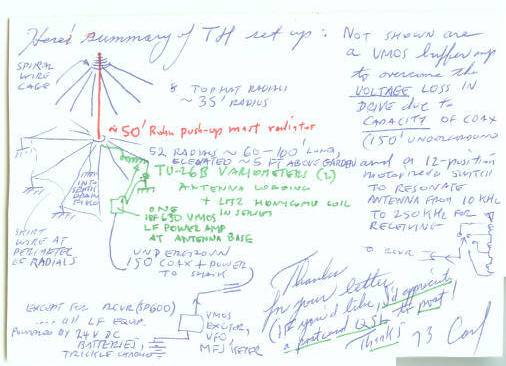 Here's summary of TH set up:
SPIRAL
WIRE
CAGE
8 TOP HAT RADIALS
~ 35' RADIUS
~50' Rohn push-up mast radiator
52 RADIALS ~ 60-100' LONG,
ELEVATED ~ 5 FT ABOVE GARDEN
TU-26B VARIOMETERS (2)
ANTENNA LOADING
+ LITZ HONEYCOMB COIL
IN SERIES
ONE
IRF630 VMOS
LF POWER AMP
AT ANTENNA BASE
INTO
SEPTIC
DRAIN
FIELD
SKIRT
WIRE AT
PERIMETER
OF RADIALS
UNDERGROUND
150' COAX + POWER
TO SHACK
EXCEPT FOR RCVR (SP600)
.... all LF EQUIP.
POWERED by 24V DC
BATTERIES,
TRICKLE CHARGED
VMOS
EXCITOR,
VFO
MFJ KEYER
NOT SHOWN are
a VMOS buffer amp
to overcome the
VOLTAGE LOSS IN
DRIVE due to
CAPACITY OF COAX
(150' UNDERGROUND
and a 12-position
motorized switch
TO RESONATE
ANTENNA FROM 10 KHz
TO 250 KHz FOR
RECEIVING
TO RCVR
Thanks
for your letter
(If you'd like, I'd appreciate
a postcard QSL to post!
Thanks! 73 Carl